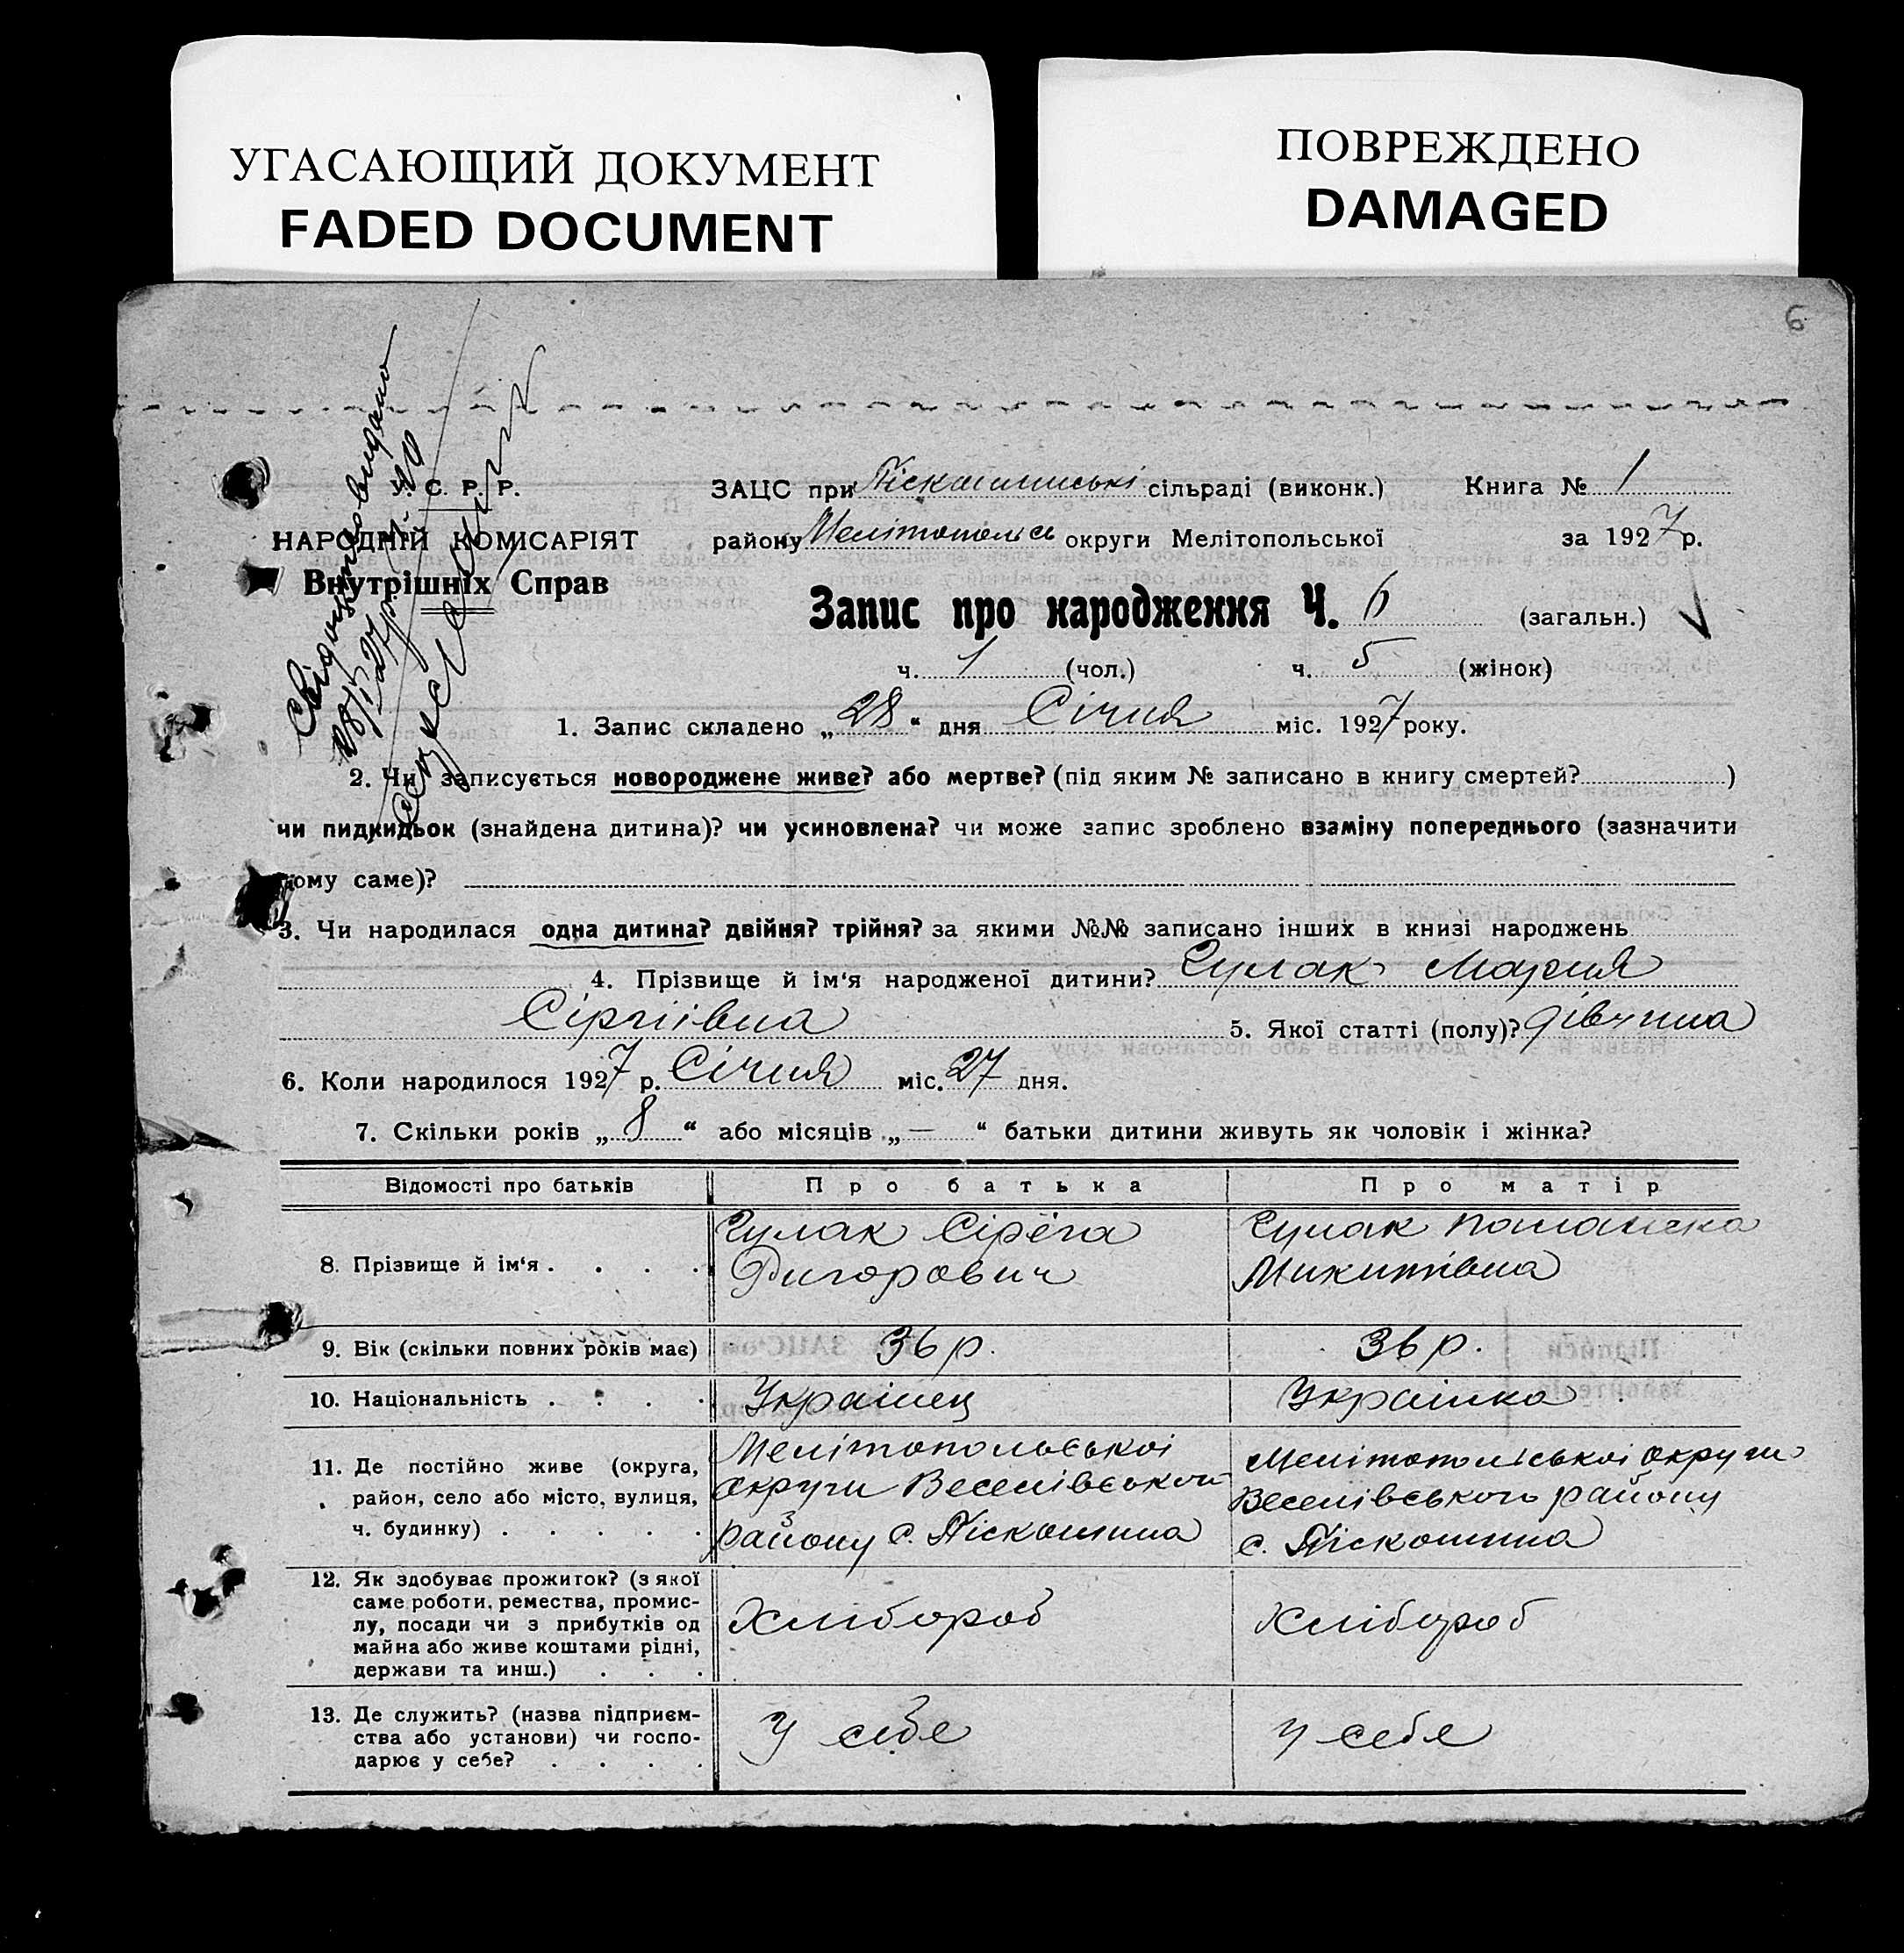 УГАСАЮЩИЙ ДОКУМЕНТ
FADED DOCUMENT
ПОВРЕЖДЕНО
DAMAGED
6
Свідоцтво видано
28/I 27 р.
У. С. Р. Р.
НАРОДНІЙ КОМІСАРІЯТ
Внутрішніх Справ
ЗАЦС при Піскашинські сільраді (виконк.) Книга № 1
району Мелітопольсь округи Мелітопольської за 1927 р.
Запис про народження Ч. 6 (загальн.)
ч. 1 (чол.) ч. 5 (жінок)
1. Запис складено „28“ дня Січня міс. 1927 року.
2. Чи записується новороджене живе? або мертве? (під яким № записано в книгу смертей? )
чи пидкидьок (знайдена дитина)? чи усиновлена? чи може запис зроблено взаміну попереднього (зазначити
кому саме)?
3. Чи народилася одна дитина? двійня? трійня? за якими №№ записано інших в книзі народжень
4. Прізвище й ім‘я народженої дитини? Гулак Мария
Сіргіівна 5. Якої статті (полу)? дівчина
6. Коли народилося 1927 р. Січня міс. 27 дня.
7. Скільки років „8“ або місяців „—“ батьки дитини живуть як чоловік і жінка?
Відомості про батьків Про батька Про матір
8. Прізвище й ім‘я . . . . Гулак Сірёга Гулак
Григорович Микитівна
9. Вік (скільки повних років має) 36 р. 36 р.
10. Національність . . . . Украінец Украінка
11. Де постійно живе (округа, район, село або місто, вулиця, ч. будинку) . . . . .
Мелітопольської округи Веселівського району с. Піскошина
Мелітопольської округи Веселівського району с. Піскошина
12. Як здобуває прожиток? (з якої саме роботи, ремества, промислу, посади чи з прибутків од майна або живе коштами рідні, держави та инш.) . . .
Хлібороб Хлібороб
13. Де служить? (назва підприємства або установи) чи господарює у себе? . . . .
У себе У себе